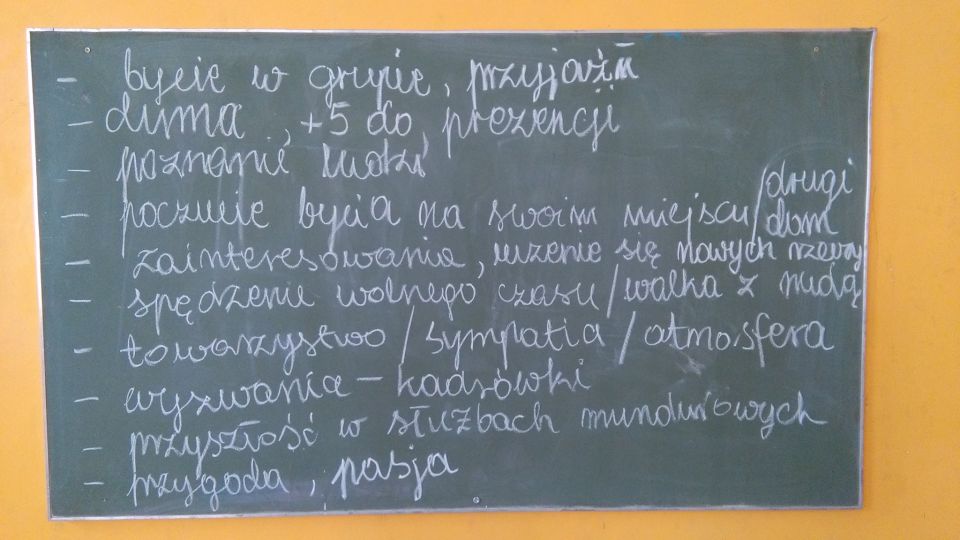 - bycie w grupie, przyjaźń
- duma, +5 do prezencji
- poznanie ludzi
- poczucie bycia na swoim miejscu/drugi dom
- zainteresowania, uczenie się nowych rzeczy
- spędzenie wolnego czasu/walka z nudą
- towarzystwo/sympatia/atmosfera
- wyzwania - kadrówki
- przyszłość w służbach mundurowych
- przygoda, pasja